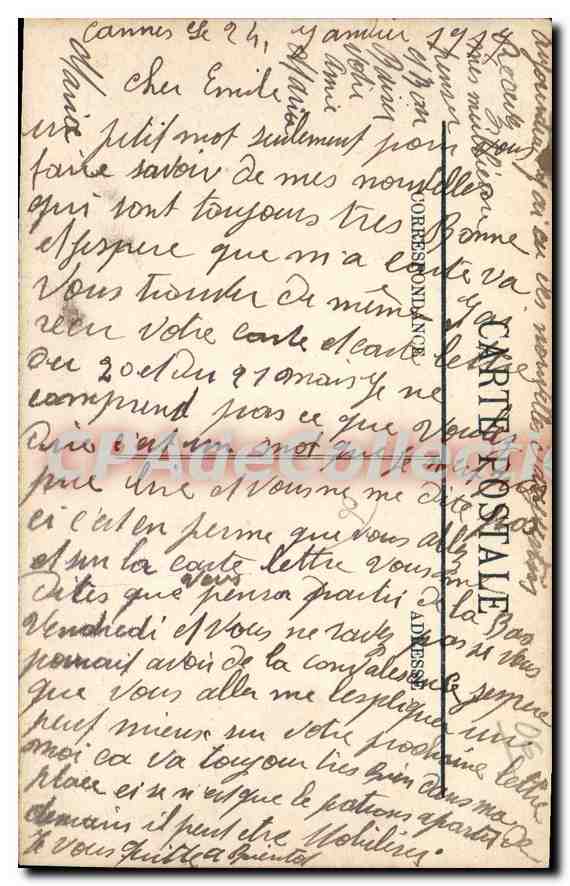 Cannes le 24, Janvier 191
Cher Emile
un petit mot seulement pour vous
faire savoir de mes nouvelles
qui sont toujours tres Bonne
et j'espere que m a carte va
Vous trouver de même J'ai
recu votre carte et carte lettre
du 20 et du 21 mais Je ne
comprend pas ce que vous
dire c'est un mot que je n'ai
pue lire et vous ne me dite pas
ci c'est en perme que vous allez
et sur la carte lettre vous me
dites que vous pensez partir de la Bas
Vendredi et vous ne savez pas si vous
pourrait avoir de la convalescence j'espere
que vous aller me l'espliquer un
peut mieux sur votre prochaine lettre
moi ca va toujour tres bien dans ma
place ci se n'est que le patron apartir de
demain il peut etre Mobiliser.
Je vous quitte a Bientot
Recevez
mes meilleur
Bon
Baiser
Votre
Amie
Maria
Maria
CORRESPONDANCE
CARTE POSTALE
ADRESSE
CPAdeCollection